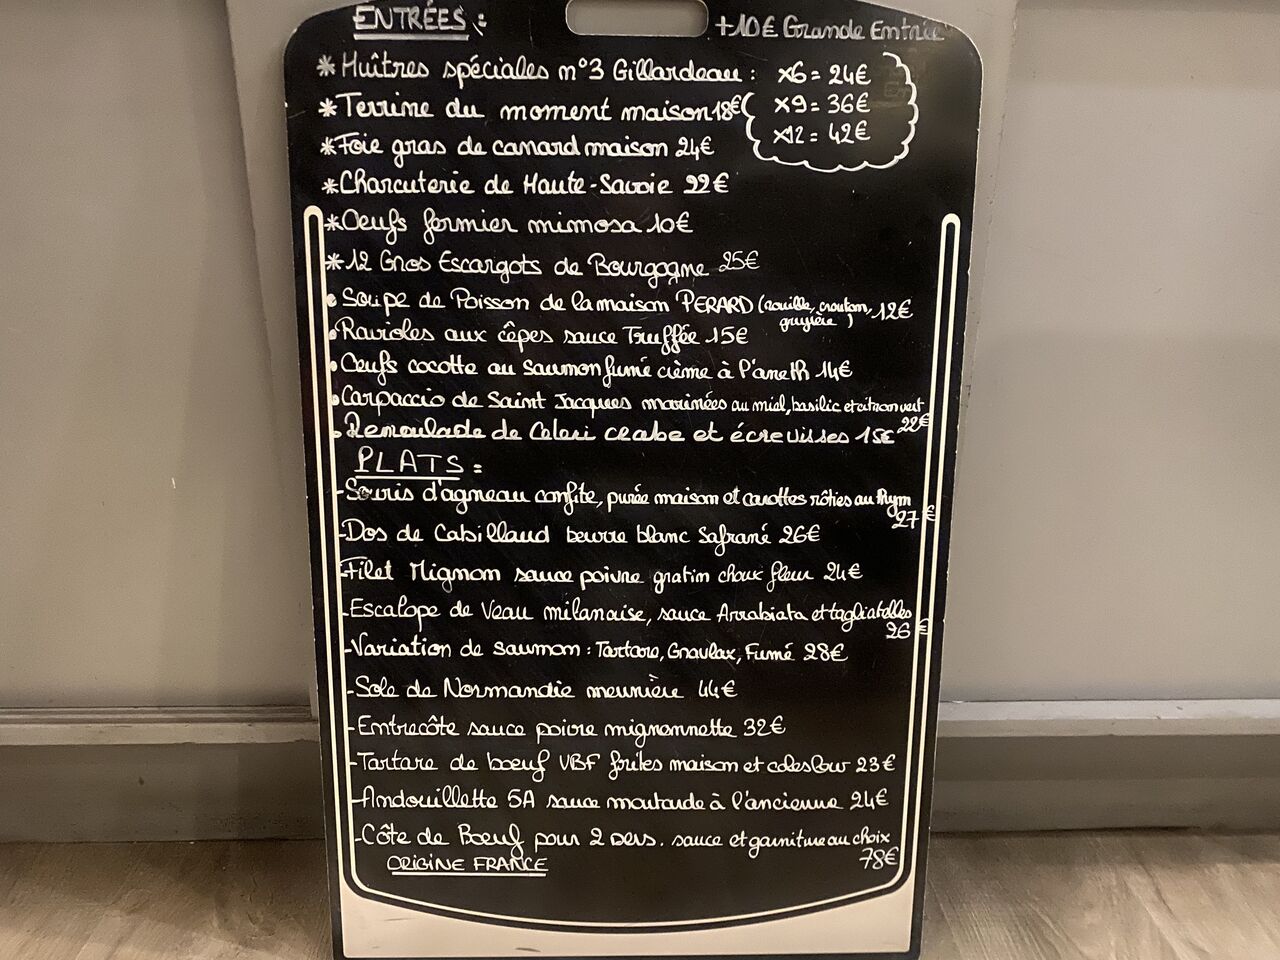 ENTRÉES :
+10€ Grande Entrée
* Huîtres spéciales n°3 Gillardeau : x6 = 24€
x9 = 36€
x12 = 42€
* Terrine du moment maison 18€
* Foie gras de canard maison 24€
* Charcuterie de Haute-Savoie 22€
* Oeufs fermier mimosa 10€
* 12 Gros Escargots de Bourgogne 25€
• Soupe de Poisson de la maison PERARD (rouille, crouton, gruyère) 12€
• Ravioles aux cêpes sauce Truffée 15€
• Oeufs cocotte au saumon fumé crème à l'aneth 14€
• Carpaccio de Saint Jacques marinées au miel, basilic et citron vert 22€
• Remoulade de Celeri crabe et écrevisses 15€
PLATS :
- Souris d'agneau confite, purée maison et carottes rôties au thym 27€
- Dos de Cabillaud beurre blanc Safrané 26€
- Filet Mignon sauce poivre gratin choux fleur 24€
- Escalope de Veau milanaise, sauce Arrabiata et tagliatelles 26€
- Variation de saumon : Tartare, Gravlax, Fumé 28€
- Sole de Normandie meunière 44€
- Entrecôte sauce poivre mignonnette 32€
- Tartare de boeuf VBF frites maison et coleslaw 23€
- Andouillette 5A sauce moutarde à l'ancienne 24€
- Côte de Boeuf pour 2 pers. sauce et garniture au choix 78€
ORIGINE FRANCE